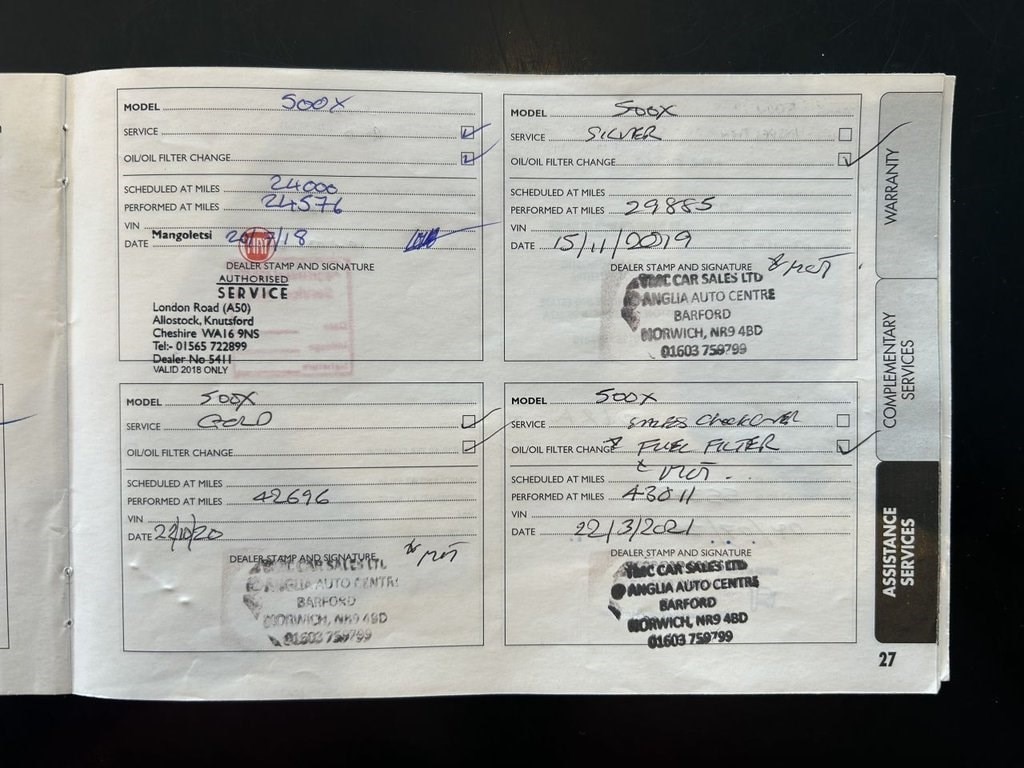 MODEL 500X
SERVICE
OIL/OIL FILTER CHANGE
SCHEDULED AT MILES 24000
PERFORMED AT MILES 24576
VIN
Mangoletsi
DATE 20/7/18
DEALER STAMP AND SIGNATURE
AUTHORISED
SERVICE
London Road (A50)
Allostock, Knutsford
Cheshire WA16 9NS
Tel:- 01565 722899
Dealer No 5411
VALID 2018 ONLY
MODEL 500X
SERVICE SILVER
OIL/OIL FILTER CHANGE
SCHEDULED AT MILES
PERFORMED AT MILES 29885
VIN
DATE 15/11/2019
DEALER STAMP AND SIGNATURE & MOT
CAR SALES LTD
ANGLIA AUTO CENTRE
BARFORD
NORWICH, NR9 4BD
01603 759799
MODEL 500X
SERVICE GOLD
OIL/OIL FILTER CHANGE
SCHEDULED AT MILES
PERFORMED AT MILES 42696
VIN
DATE 22/10/20
DEALER STAMP AND SIGNATURE & MOT
CAR SALES LTD
ANGLIA AUTO CENTRE
BARFORD
NORWICH, NR9 4BD
01603 759799
MODEL 500X
SERVICE CheckOver
OIL/OIL FILTER CHANGE & FUEL FILTER
& MOT
SCHEDULED AT MILES
PERFORMED AT MILES 43011
VIN
DATE 22/3/2021
DEALER STAMP AND SIGNATURE
CAR SALES LTD
ANGLIA AUTO CENTRE
BARFORD
NORWICH, NR9 4BD
01603 759799
WARRANTY
COMPLEMENTARY
SERVICES
ASSISTANCE
SERVICES
27